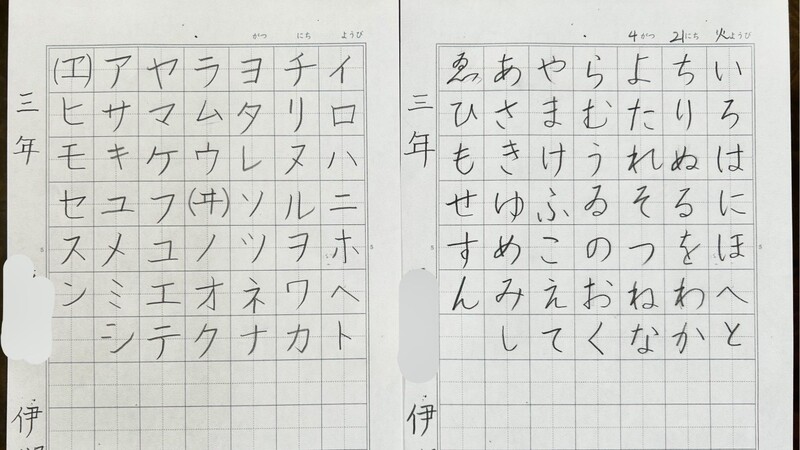 4がつ 21にち 火ようび
いろはにほへと
ちりぬるをわか
よたれそつねな
らむうゐのおく
やまけふこえて
あさきゆめみし
ゑひもせすん
三年 伊
がつ にち ようび
イロハニホヘト
チリヌルヲワカ
ヨタレソツネナ
ラムウ(ヰ)ノオク
ヤマケフコエテ
アサキユメミシ
(ヱ)ヒモセスン
三年 伊